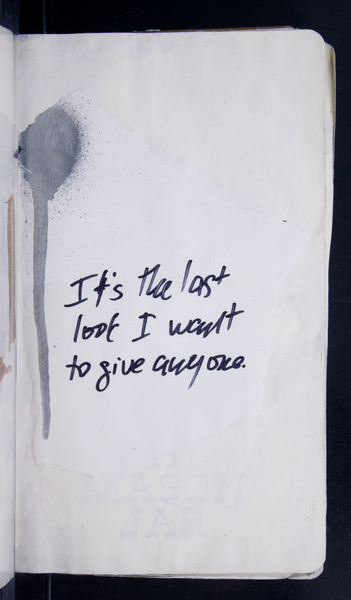 It's the last
look I want
to give anyone.
MASON
JAR